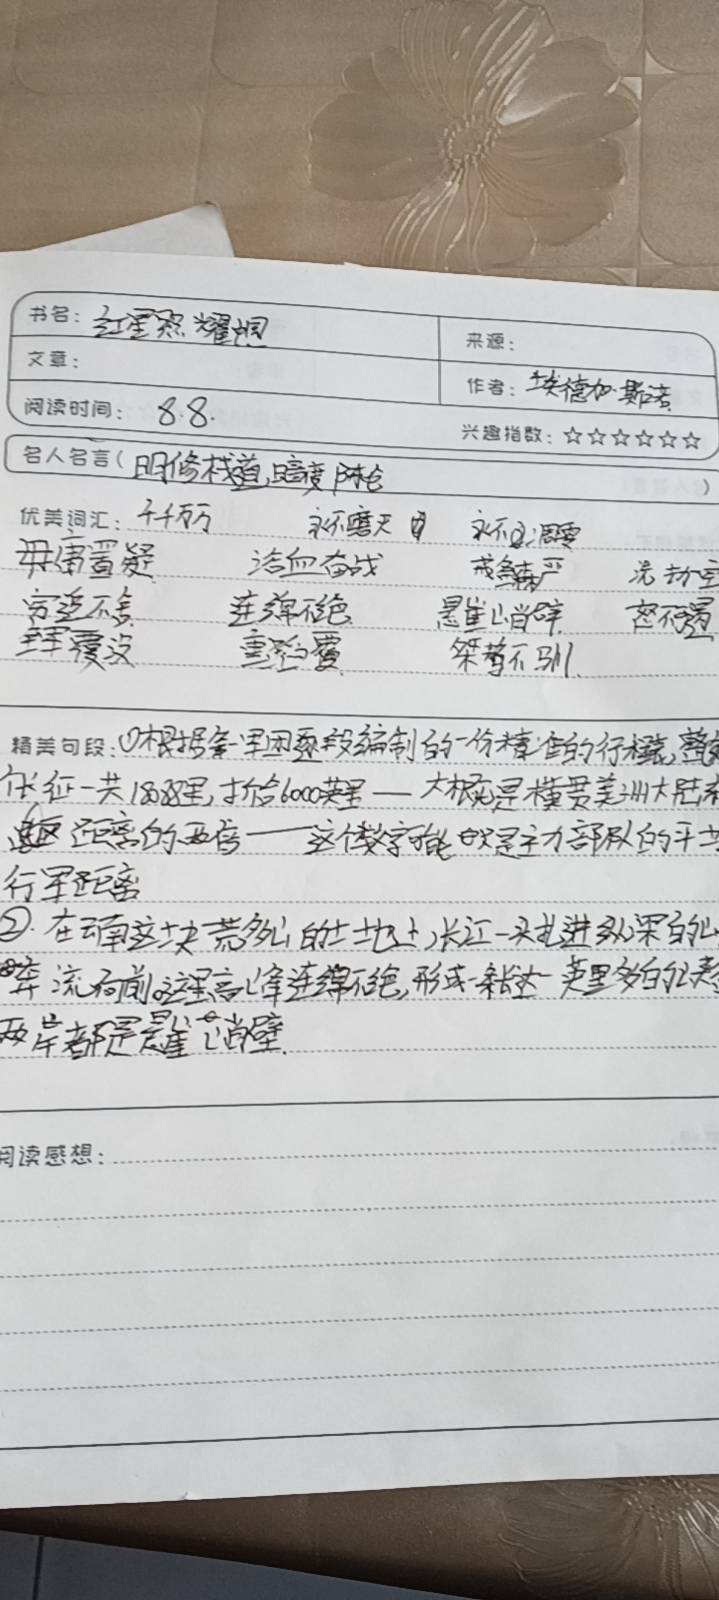 书名：红星照耀中国
来源：
文章：
作者：埃德加·斯诺
阅读时间：8.8.
兴趣指数：☆☆☆☆☆☆
名人名言（明修栈道,暗度陈仓）
优美词汇：千千万万 永不磨灭 永不凋零
毋庸置疑 浴血奋战 戒备森严
穷追不舍 连绵不绝 悬崖峭壁
全军覆没 重蹈覆 桀骜不驯
精美句段：①根据 军团逐段编制的一份精准的行程 ,整
长征一共18088里,折合6000英里——大概是横贯美洲大陆
距离的两倍——这个数字可能 是主力部队的平
行军距离
②.在云南这块荒 多山的土地上,长江一头扎进 深的
奔流 前。这里高峰连绵不绝,形成一条长达一英里多的
两岸都是悬崖峭壁.
阅读感想：